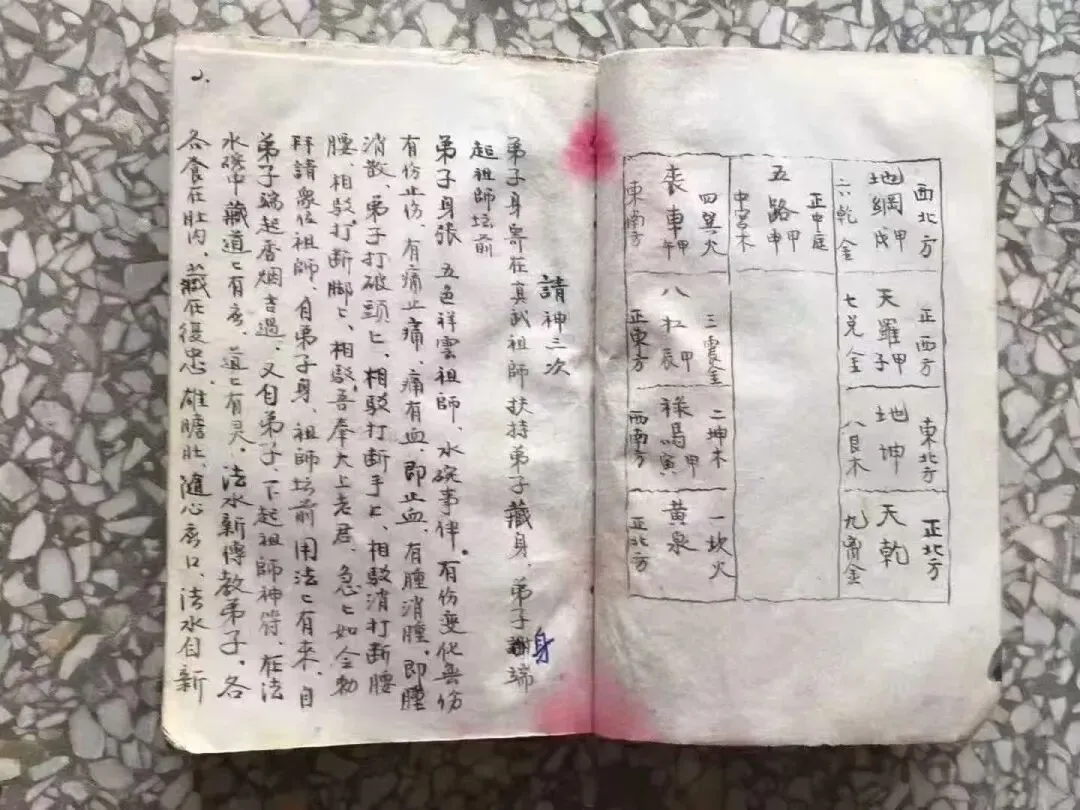 西北方
地網甲戌
六乾金
正西方
天羅甲子
七兌金
東北方
地坤
八艮木
正北方
天乾
九金
正中庭
五路甲申
中宮木
四巽火
喪車甲午
東南方
三震金
八杠甲辰
正東方
二坤木
祿馬甲寅
西南方
一坎火
黃泉
正北方
請神三次
弟子身身在真武祖師扶持弟子藏身、弟子身端
起祖師坛前
弟子身張 五色祥雲祖師、水碗事伴。有伤变化無伤
有伤止伤、有痛止痛、痛有血、即止血、有腫消腫、即腫
消散、弟子打破頭匕、相駁打断手匕、相駁消打断腰
腰、相駁打断脚匕、相駁吾奉大上老君、急匕如令勅
拜請衆位祖師、自弟子身、祖師坛前用法匕有來、自
弟子端起香烟吉過、又自弟子、下起祖師神符、在法
水碗中藏道匕有、道匕有灵、法水新傳教弟子、各
各食在肚内、藏在復忠、雄膽肚、隨心口、法水自新
2.